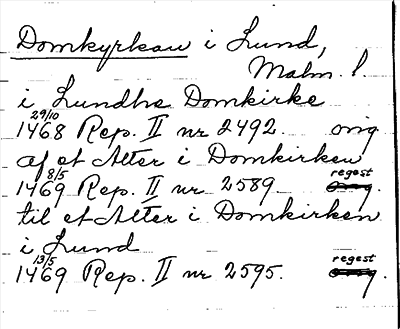 Domkyrkan i Lund,
Malm. l
i Lundhs Domkirke
29/10
1468 Rep. II nr 2492. orig
af et Alter i Domkirken
8/5 regest
1469 Rep. II nr 2589 orig.
til et Alter i Domkirken
i Lund
13/5 regest
1469 Rep. II nr 2595. orig.